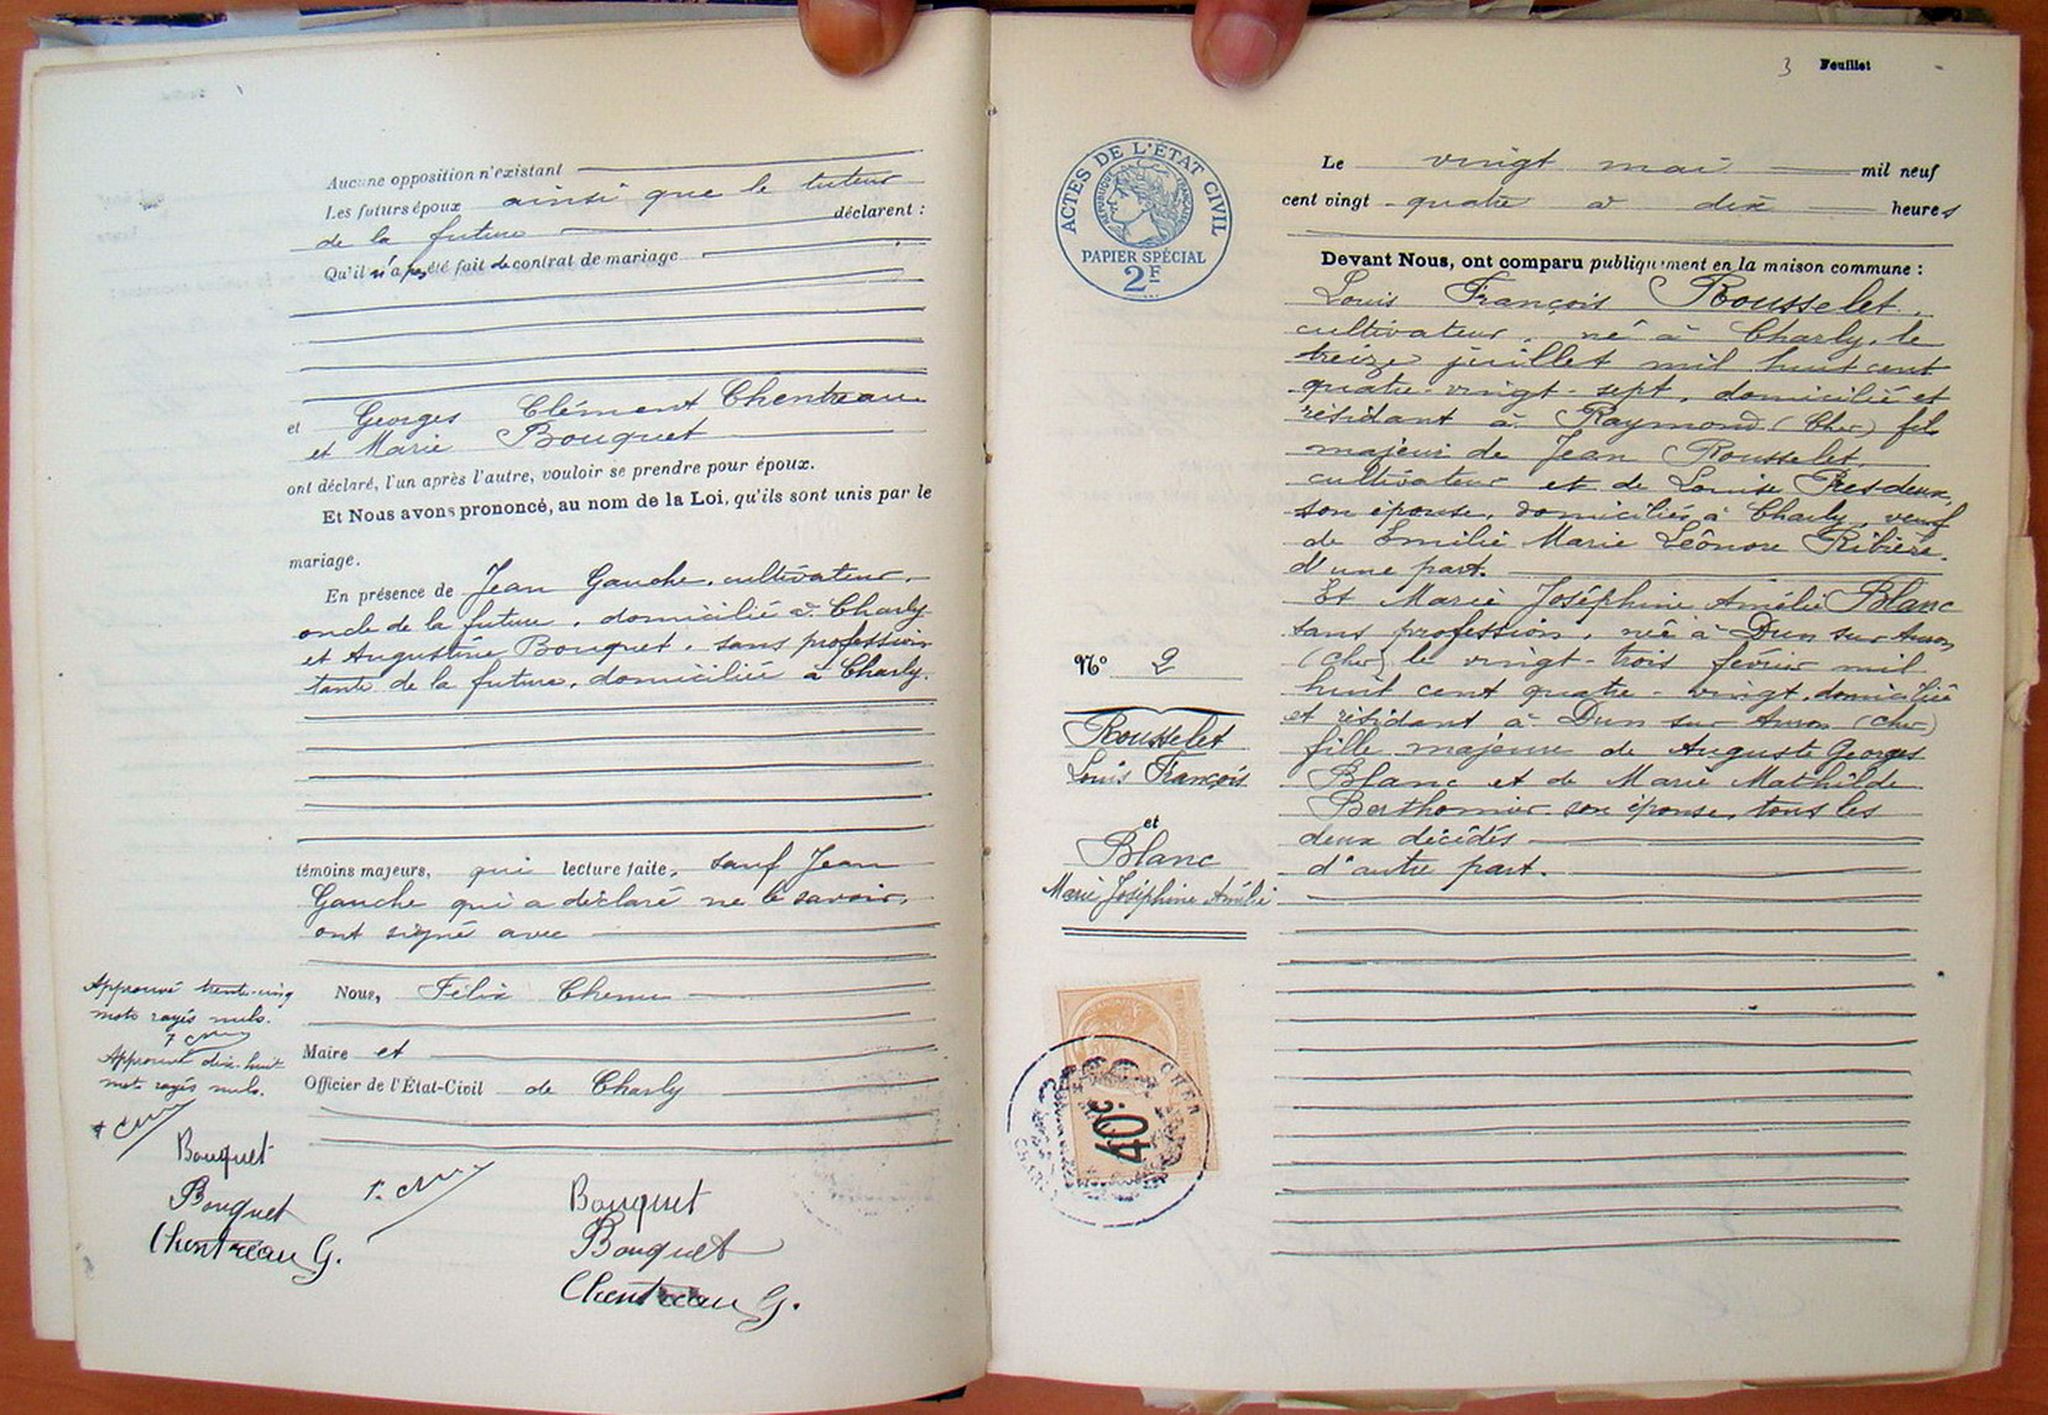 Aucune opposition n'existant
Les futurs époux ainsi que le tuteur
de la future déclarent :
Qu'il n'a pas été fait de contrat de mariage
et Georges Clément Chentreau
et Marie Bouquet
ont déclaré, l'un après l'autre, vouloir se prendre pour époux.
Et Nous avons prononcé, au nom de la Loi, qu'ils sont unis par le
mariage.
En présence de Jean Gauche, cultivateur,
oncle de la future, domicilié à Charly
et Augustine Bouquet, sans profession
tante de la future, domiciliée à Charly.
témoins majeurs, qui lecture faite, sauf Jean
Gauche qui a déclaré ne le savoir,
ont signé avec
Nous, Félix Chenu
Maire et
Officier de l'État-Civil de Charly
Approuvé trente-cinq
mots rayés nuls.
Approuvé dix-huit
mots rayés nuls.
Bouquet
Bouquet
Chentreau G.
Bouquet
Bouquet
Chentreau G.
3 Feuillet
ACTES DE L'ÉTAT CIVIL
RÉPUBLIQUE FRANÇAISE
PAPIER SPÉCIAL
2F
Le vingt mai mil neuf
cent vingt-quatre à dix heures
Devant Nous, ont comparu publiquement en la maison commune :
Louis François Rousselet,
cultivateur, né à Charly, le
treize juillet mil huit cent
quatre-vingt-sept, domicilié et
résidant à Raymond (Cher) fils
majeur de Jean Rousselet,
cultivateur et de Louise Presdeux,
son épouse, domiciliés à Charly, veuf
de Emilie Marie Léônore Ribière.
d'une part.
Et Marie Joséphine Amélie Blanc
sans profession, née à Dun sur Auron
(Cher) le vingt-trois février mil
huit cent quatre-vingt, domiciliée
et résidant à Dun sur Auron (Cher)
fille majeure de Auguste Georges
Blanc et de Marie Mathilde
Berthomier son épouse, tous les
deux décédés
d'autre part.
N° 2
Rousselet
Louis François
et
Blanc
Marie Joséphine Amélie
40c
CHER